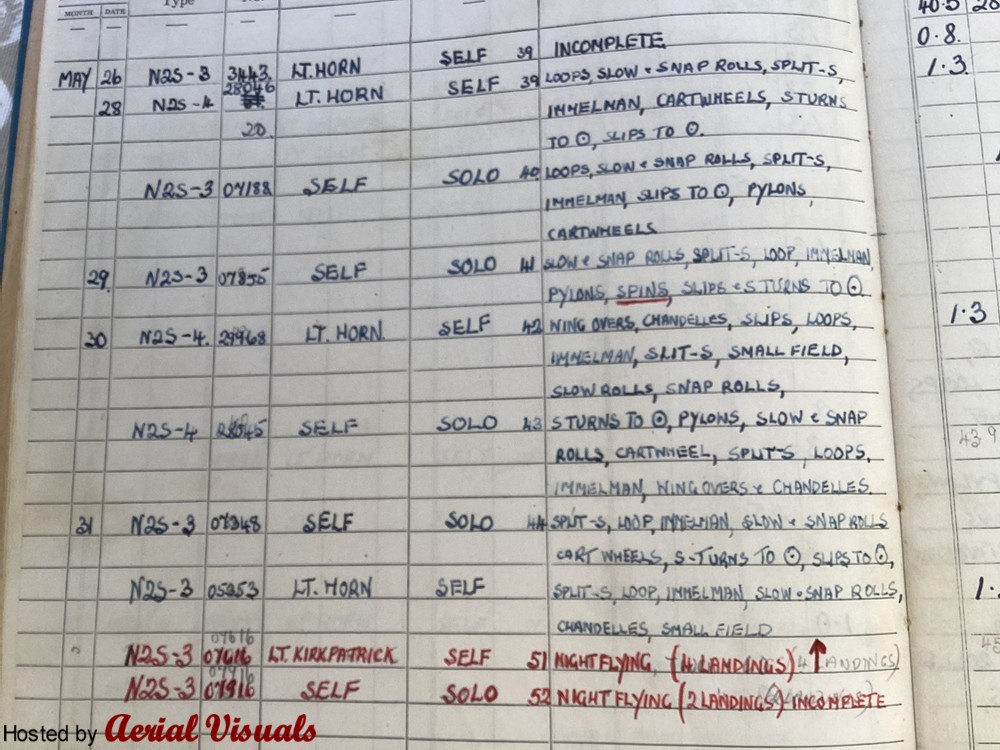 MONTH DATE Type
40.5 28
0.8.
MAY 26 N2S-3 3443 LT. HORN SELF 39 INCOMPLETE
1.3
28046
28 N2S-4 LT. HORN SELF 39 LOOPS, SLOW & SNAP ROLLS, SPLIT-S,
IMMELMAN, CARTWHEELS, S TURNS
20. TO ⊙, SLIPS TO ⊙.
N2S-3 07188 SELF SOLO 40 LOOPS, SLOW & SNAP ROLLS, SPLIT-S,
IMMELMAN, SLIPS TO ⊙, PYLONS,
CARTWHEELS
29. N2S-3 07855 SELF SOLO 41 SLOW & SNAP ROLLS, SPLIT-S, LOOP, IMMELMAN,
PYLONS, SPINS, SLIPS & S TURNS TO ⊙
30 N2S-4. 29968 LT. HORN. SELF 42 WING OVERS, CHANDELLES, SLIPS, LOOPS,
1.3
IMMELMAN, SLIT-S, SMALL FIELD,
SLOW ROLLS, SNAP ROLLS,
N2S-4 SELF SOLO 43 S TURNS TO ⊙, PYLONS, SLOW & SNAP
439
ROLLS, CARTWHEEL, SPLIT-S, LOOPS,
IMMELMAN, WING OVERS & CHANDELLES.
31 N2S-3 07348 SELF SOLO 44 SPLIT-S, LOOP, IMMELMAN, SLOW & SNAP ROLLS
CART WHEELS, S-TURNS TO ⊙, SLIPS TO ⊙,
N2S-3 05353 LT. HORN SELF SPLIT-S, LOOP, IMMELMAN, SLOW & SNAP ROLLS,
1.
CHANDELLES, SMALL FIELD
07616
N2S-3 07616 LT. KIRKPATRICK SELF 51 NIGHT FLYING, (4 LANDINGS) 4 LANDINGS)
N2S-3 07916 SELF SOLO 52 NIGHT FLYING (2 LANDINGS) INCOMPLETE
Hosted by Aerial Visuals